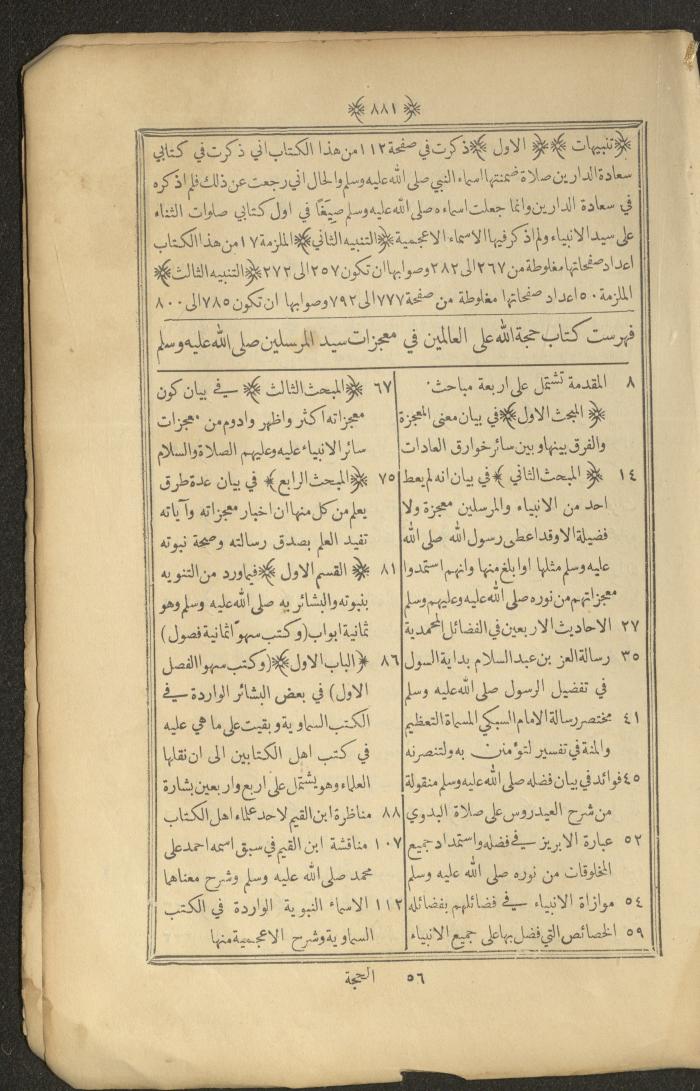 ﴿ ٨٨١ ﴾
﴿ تنبيهات ﴾ ﴿ الاول ﴾ ذكرت في صفحة ١١٢ من هذا الكتاب اني ذكرت في كتابي
سعادة الدارين صلاة ضمنتها اسماء النبي صلى الله عليه وسلم والحال اني رجعت عن ذلك فلم اذكره
في سعادة الدارين وانما جعلت اسماءه صلى الله عليه وسلم صيغًا في اول كتابي صلوات الثناء
على سيد الانبياء ولم اذكر فيها الاسماء الاعجمية ﴿ التنبيه الثاني ﴾ الملزمة ١٧ من هذا الكتاب
اعداد صفحاتها مغلوطة من ٢٦٧ الى ٢٨٢ وصوابها ان تكون ٢٥٧ الى ٢٧٢ ﴿ التنبيه الثالث ﴾
الملزمة ٥٠ اعداد صفحاتها مغلوطة من صفحة ٧٧٧ الى ٧٩٢ وصوابها ان تكون ٧٨٥ الى ٨٠٠
فهرست كتاب حجة الله على العالمين في معجزات سيد المرسلين صلى الله عليه وسلم
٨ المقدمة تشتمل على اربعة مباحث
﴿ المبحث الاول ﴾ في بيان معنى المعجزة
والفرق بينها وبين سائر خوارق العادات
١٤ ﴿ المبحث الثاني ﴾ في بيان انه لم يعط
احد من الانبياء والمرسلين معجزة ولا
فضيلة الا وقد اعطى رسول الله صلى الله
عليه وسلم مثلها او ابلغ منها وانهم استمدوا
معجزاتهم من نوره صلى الله عليه وعليهم وسلم
٢٧ الاحاديث الاربعين في الفضائل المحمدية
٣٥ رسالة العز بن عبد السلام بداية السول
في تفضيل الرسول صلى الله عليه وسلم
٤١ مختصر رسالة الامام السبكي المسماة التعظيم
والمنة في تفسير لتؤمنن به ولتنصرنه
٤٥ فوائد في بيان فضله صلى الله عليه وسلم منقولة
من شرح العيدروس على صلاة البدوي
٥٢ عبارة الابريز في فضله واستمداد جميع
المخلوقات من نوره صلى الله عليه وسلم
٥٤ موازاة الانبياء في فضائلهم بفضائله
٥٩ الخصائص التي فضل بها على جميع الانبياء
٦٧ ﴿ المبحث الثالث ﴾ في بيان كون
معجزاته اكثر واظهر وادوم من معجزات
سائر الانبياء عليه وعليهم الصلاة والسلام
٧٥ ﴿ المبحث الرابع ﴾ في بيان عدة طرق
يعلم من كل منها ان اخبار معجزاته وآياته
تفيد العلم بصدق رسالته وصحة نبوته
٨١ ﴿ القسم الاول ﴾ فيما ورد من التنويه
بنبوته والبشائر به صلى الله عليه وسلم وهو
ثمانية ابواب (وكتب سهوًا ثمانية فصول)
٨٦ ﴿ الباب الاول ﴾ (وكتب سهوا الفصل
الاول) في بعض البشائر الواردة في
الكتب السماوية وبقيت على ما هي عليه
في كتب اهل الكتابين الى ان نقلها
العلماء وهو يشتمل على اربع واربعين بشارة
٨٨ مناظرة ابن القيم لاحد علماء اهل الكتاب
١٠٧ مناقشة ابن القيم في سبق اسمه احمد على
محمد صلى الله عليه وسلم وشرح معناهما
١١٢ الاسماء النبوية الواردة في الكتب
السماوية وشرح الاعجمية منها
٥٦ الحجة